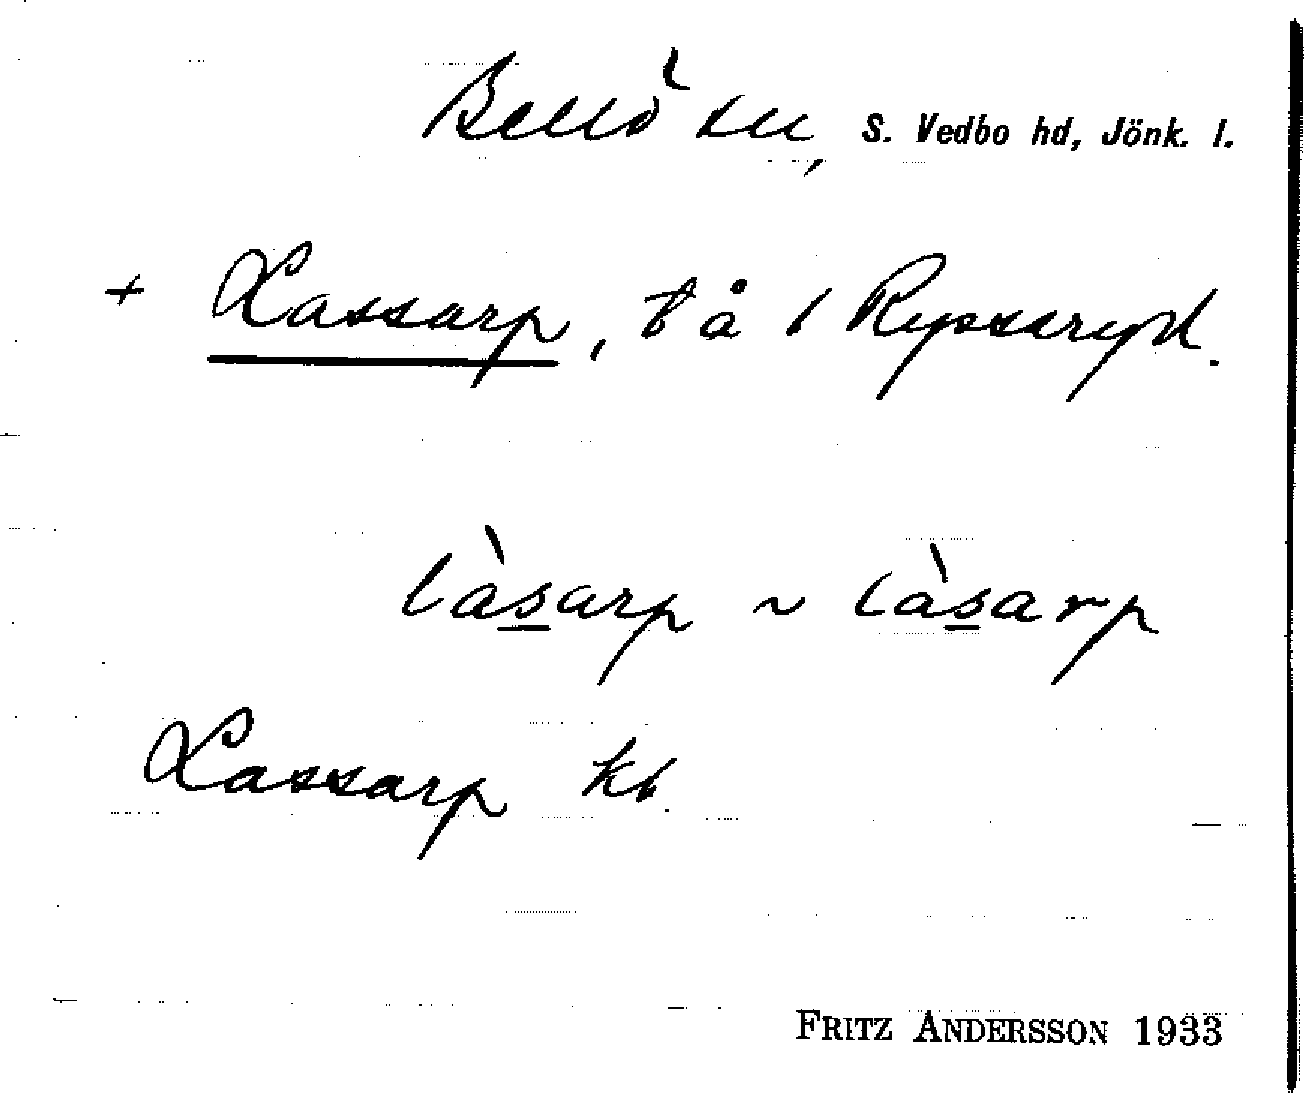 Bellö sn, S. Vedbo hd, Jönk. l.
+ Lassarp, t å 1 Rypseryd.
làsarp ~ làsarp
Lassarp kb
FRITZ ANDERSSON 1933